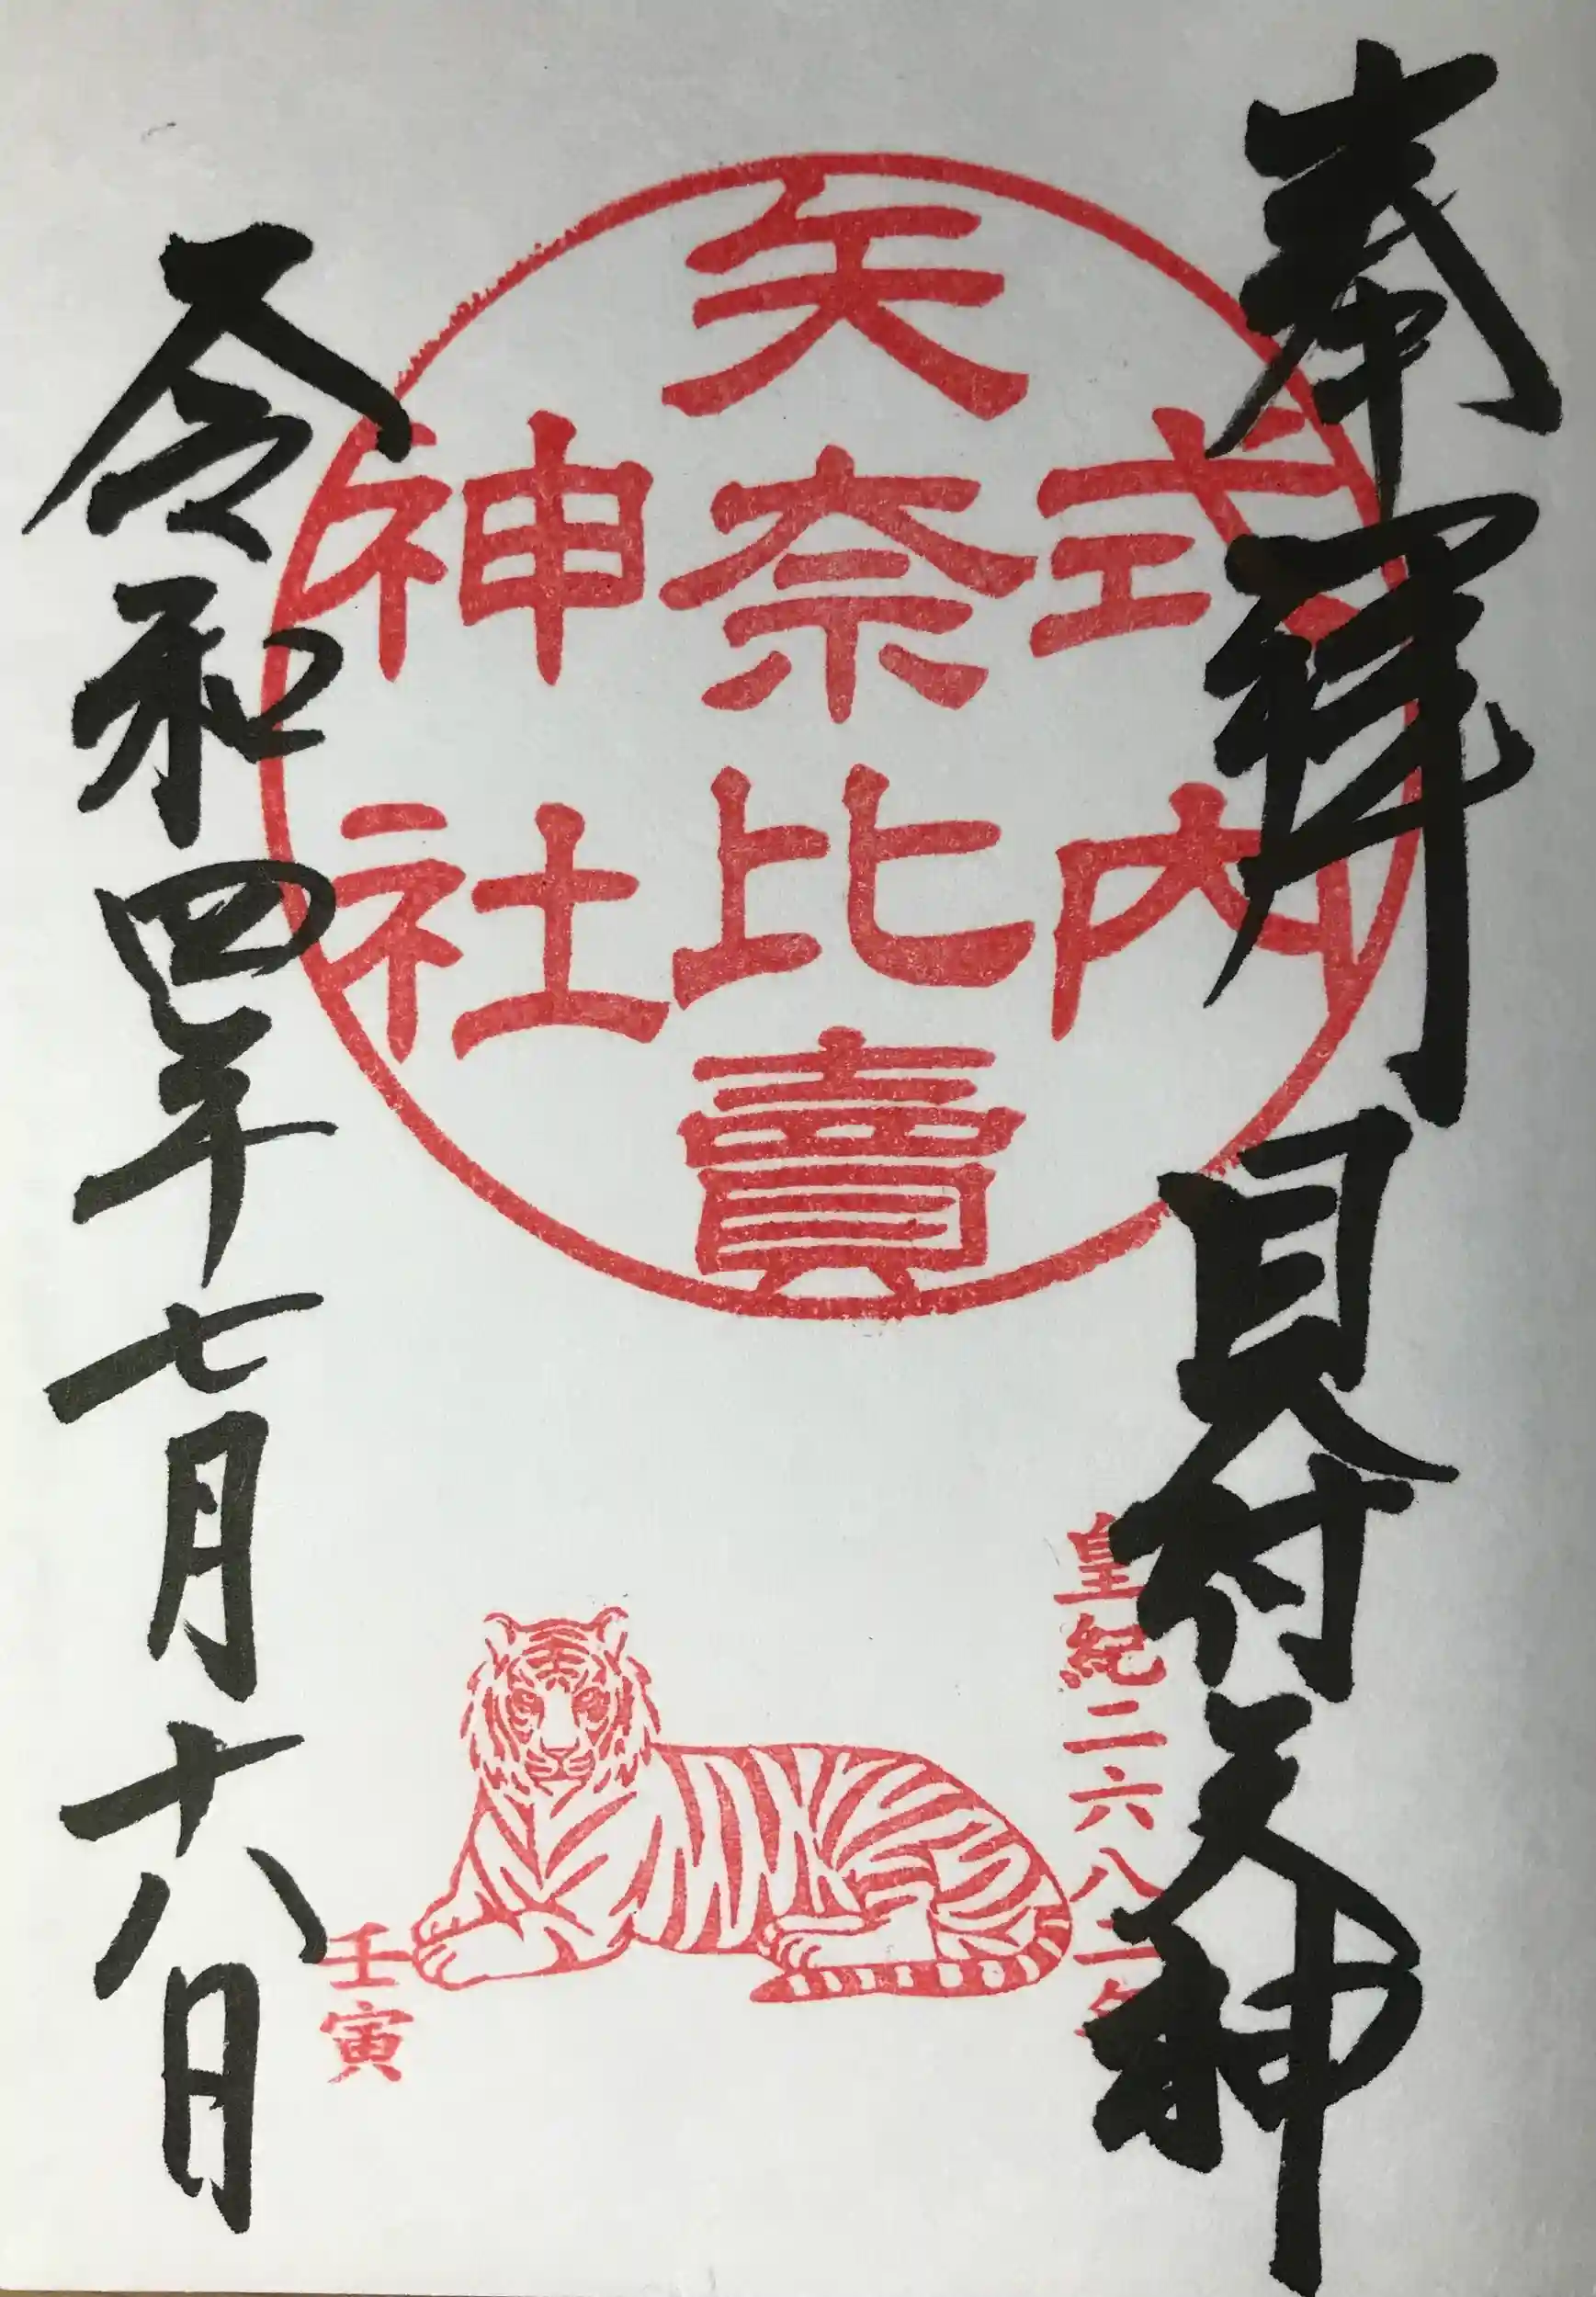 奉拝 見付天神
式内
矢奈比賣
神社
皇紀二六八二年
壬寅
令和四年七月十八日